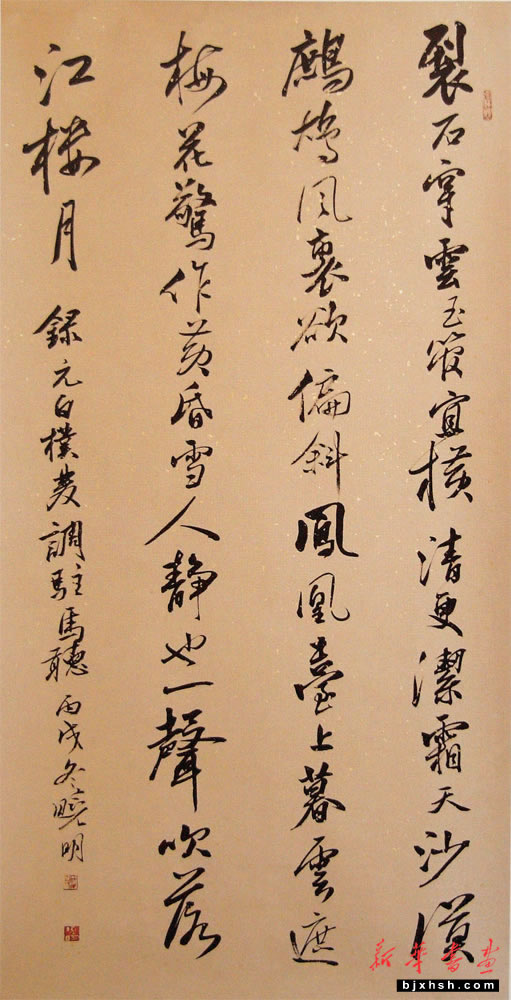 裂石穿雲玉管宜橫清更潔霜天沙漠
鷓鴣風裏欲偏斜鳳凰臺上暮雲遮
梅花驚作黃昏雪人靜也一聲吹落
江楼月
録元白樸雙調駐馬聽丙戌冬曉明
新华書畫
bjxhsh.com